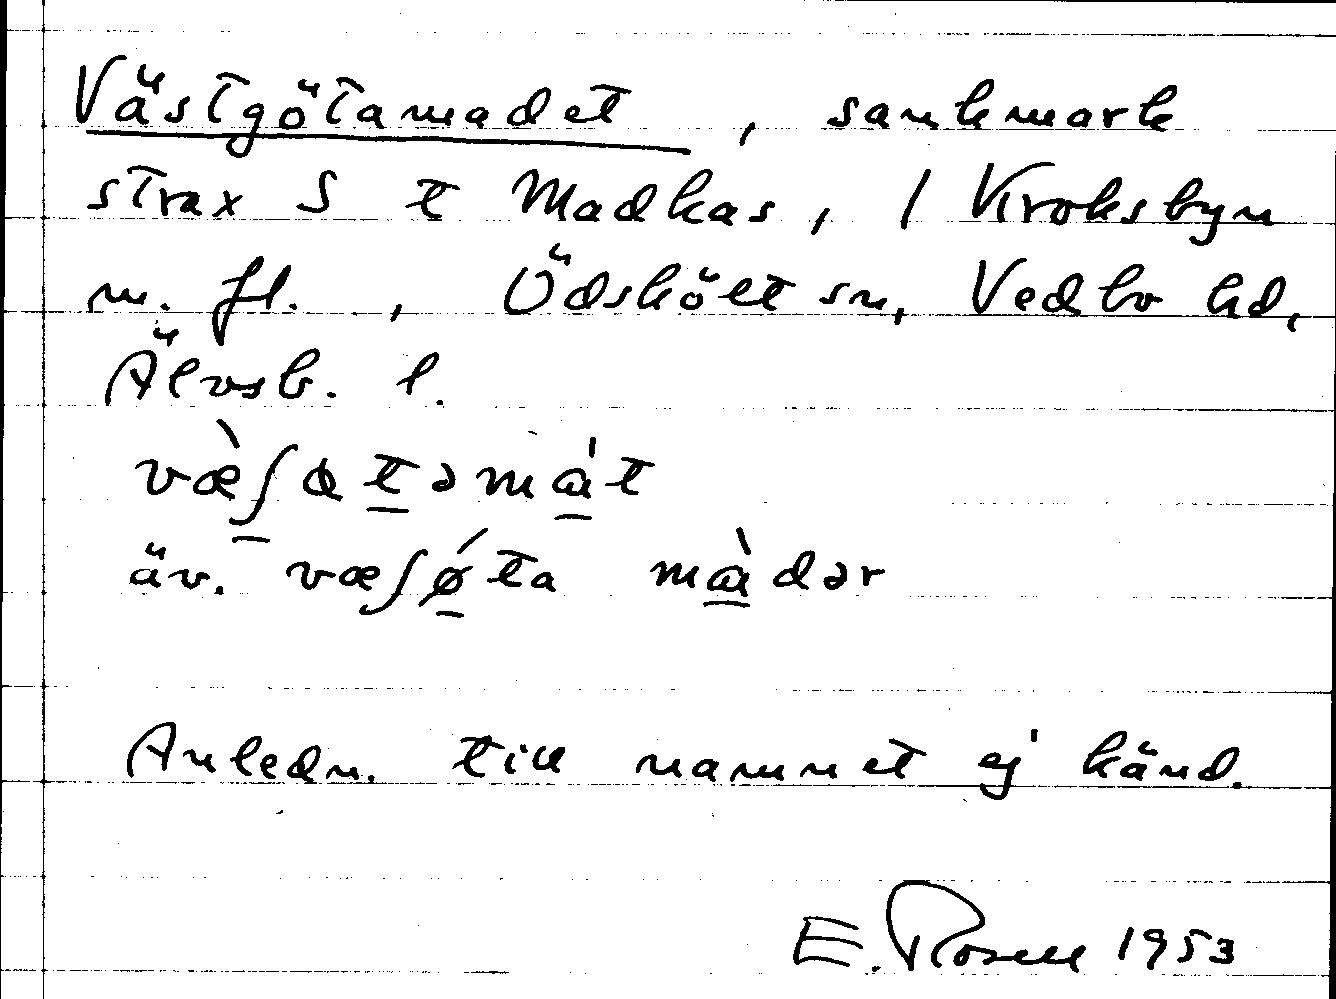 Västgötamadet, sankmark
strax S t Madkas, / Kroksbyn
m. fl., Ödsköllt sn, Vedbo hd,
Älvsb. l.
væ̀ʃøtəmɑ̀t
äv. væʃǿta mɑ̀dər
Anledn. till namnet ej känd.
E. Rosell 1953